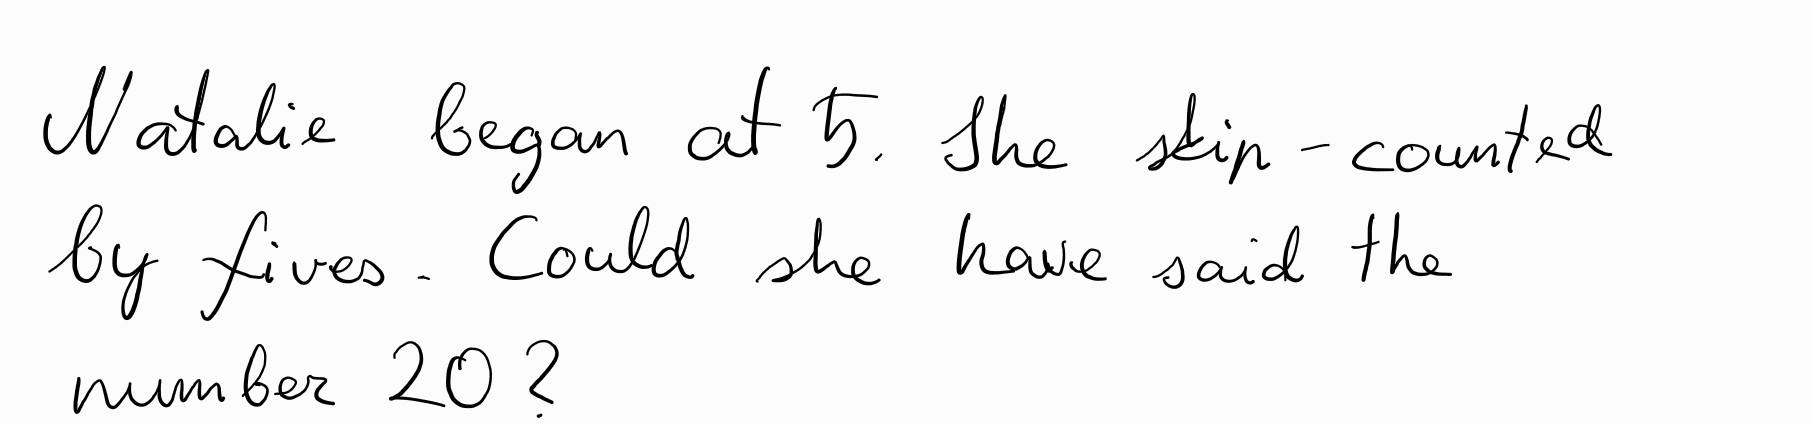 Natalie began at 5. She skip-counted
by fives. Could she have said the
number 20?